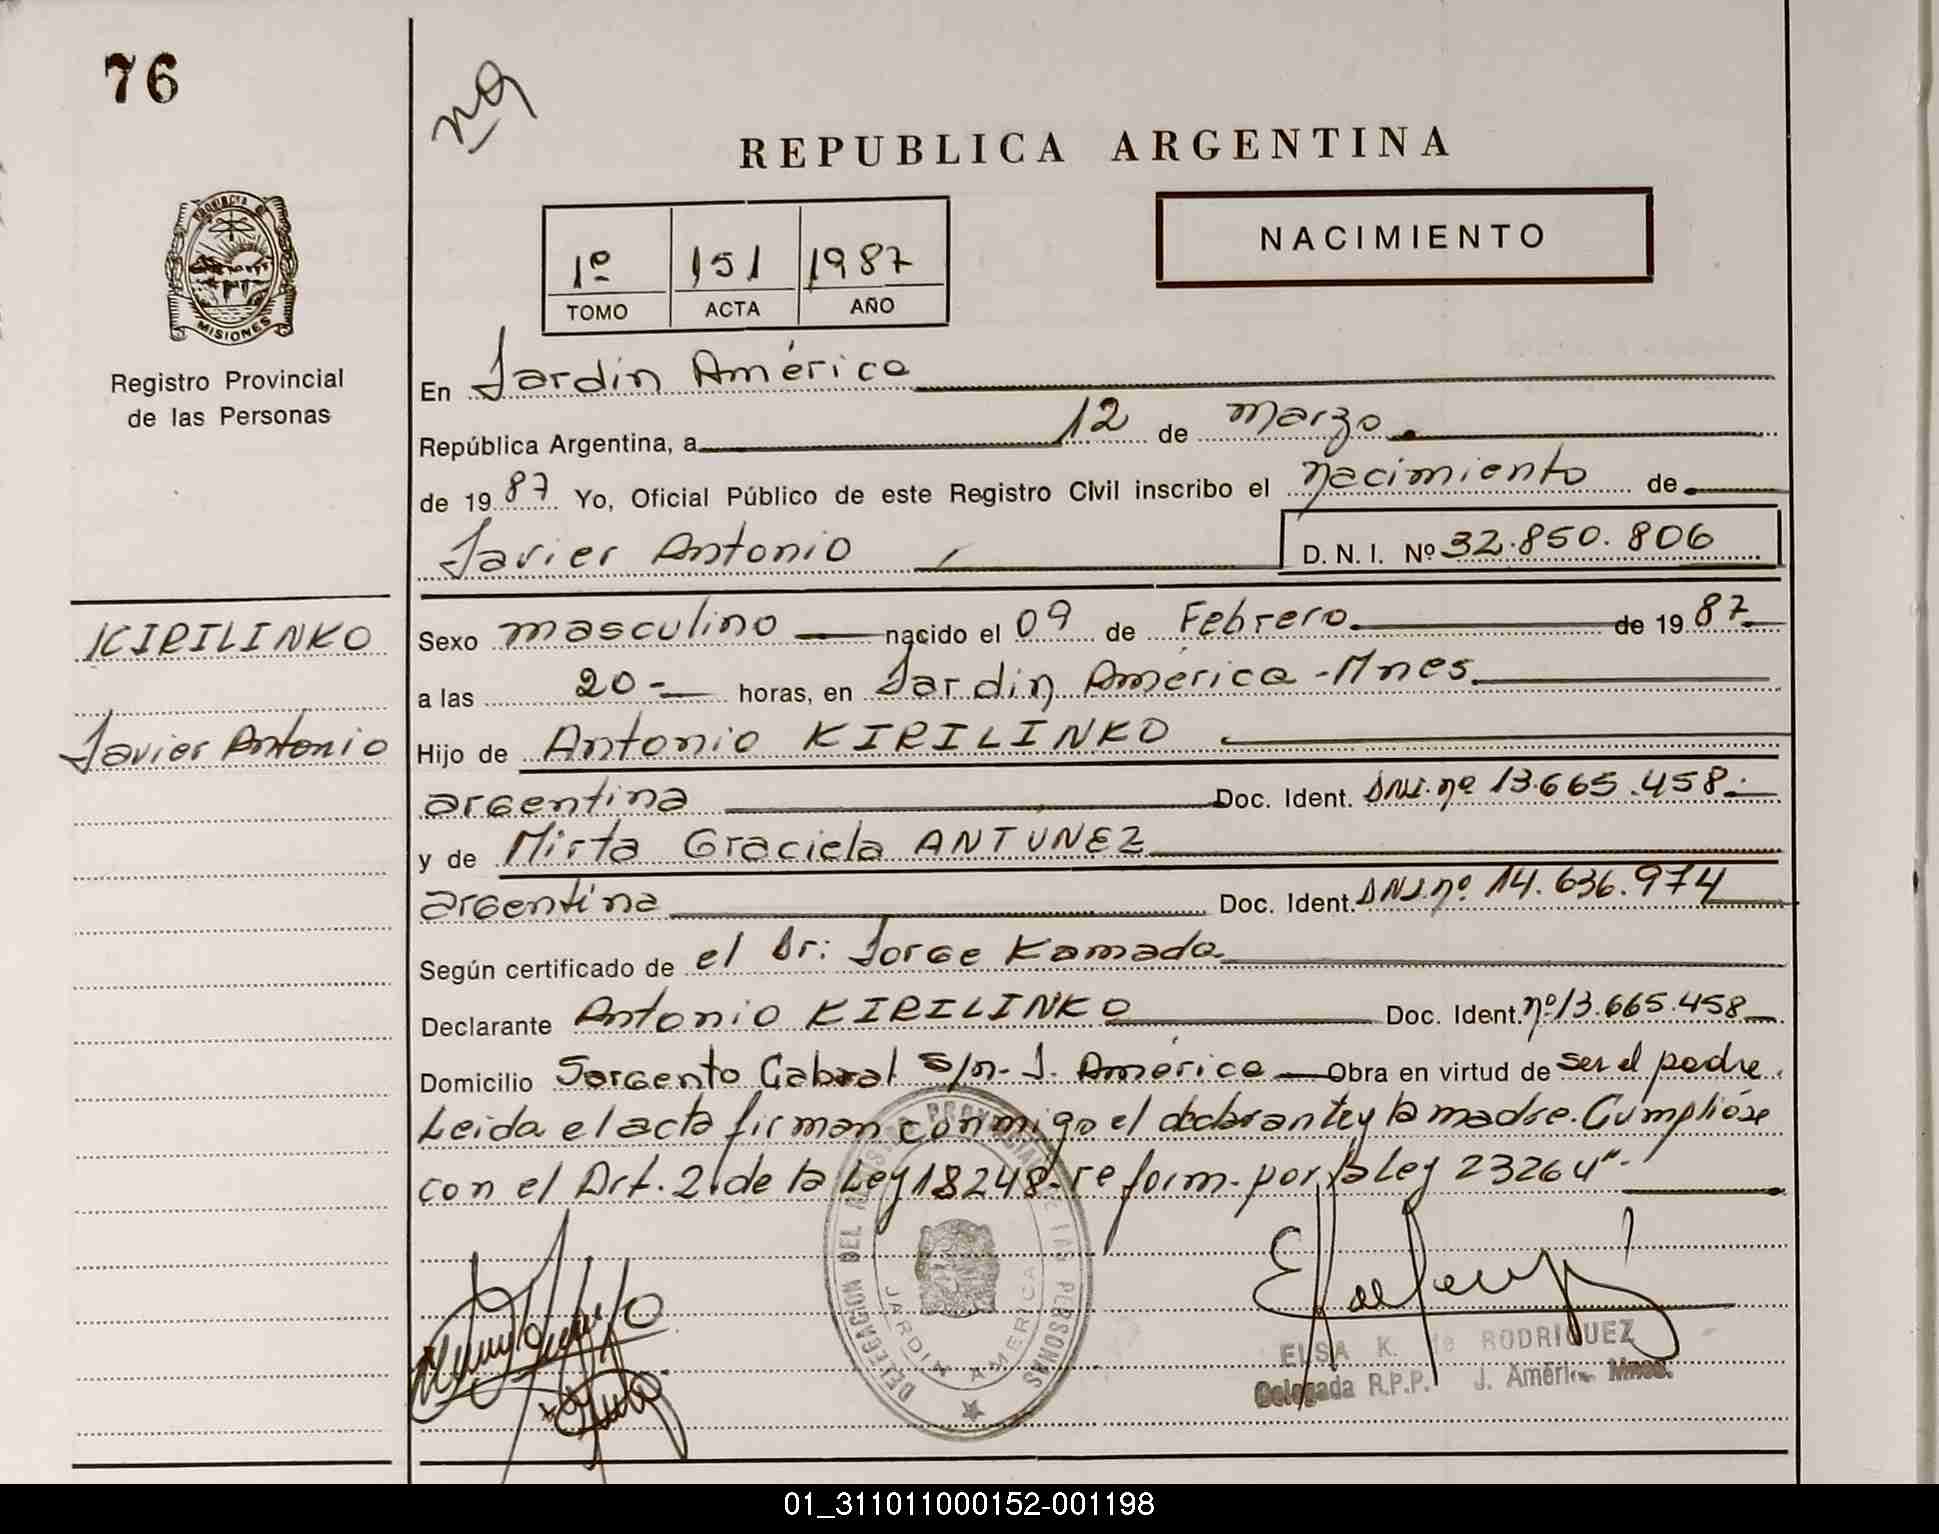 76
nº
REPUBLICA ARGENTINA
PROVINCIA DE
MISIONES
Registro Provincial
de las Personas
1º 151 1987
TOMO ACTA AÑO
NACIMIENTO
En Jardín América
República Argentina, a 12 de marzo.
de 1987 Yo, Oficial Público de este Registro Civil inscribo el nacimiento de
Javier Antonio D. N. I. Nº 32.850.806
KIRILINKO
Javier Antonio
Sexo masculino nacido el 09 de Febrero. de 1987.
a las 20- horas, en Jardín América -Mnes.
Hijo de Antonio KIRILINKO
argentina Doc. Ident. DNI. nº 13.665.458.-
y de Mirta Graciela ANTUNEZ
argentina Doc. Ident. DNI. nº 14.636.974
Según certificado de el Dr: Jorge Kamada.
Declarante Antonio KIRILINKO Doc. Ident. nº 13.665.458
Domicilio Sargento Cabral s/n- J. América Obra en virtud de ser el padre.
Leida el acta firman conmigo el declarante y la madre. Cumplióse
con el Art. 2 de la Ley 18248- reform. por la Ley 23264".-
DELEGACION DEL REGISTRO PROVINCIAL DE LAS PERSONAS
JARDIN AMERICA
ELSA K. de RODRIGUEZ
Delegada R.P.P. J. América Mnes.
01_311011000152-001198